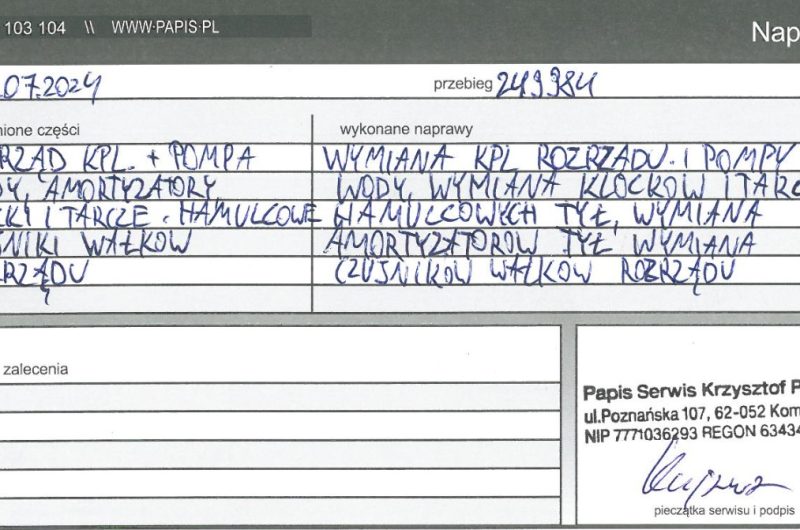 103 104 \\ WWW.PAPIS.PL
Nap
07.2024 przebieg 249984
nione części wykonane naprawy
RZĄD KPL. + POMPA WYMIANA KPL ROZRZĄDU I POMPY
DY, AMORTYZATORY, WODY, WYMIANA KLOCKÓW I TARC
CKI I TARCZE HAMULCOWE HAMULCOWYCH TYŁ, WYMIANA
ŚNIKI WAŁKÓW AMORTYZATORÓW TYŁ WYMIANA
RZĄDU CZUJNIKÓW WAŁKÓW ROZRZĄDU
zalecenia
Papis Serwis Krzysztof P
ul.Poznańska 107, 62-052 Kom
NIP 7771036293 REGON 63434
pieczątka serwisu i podpis